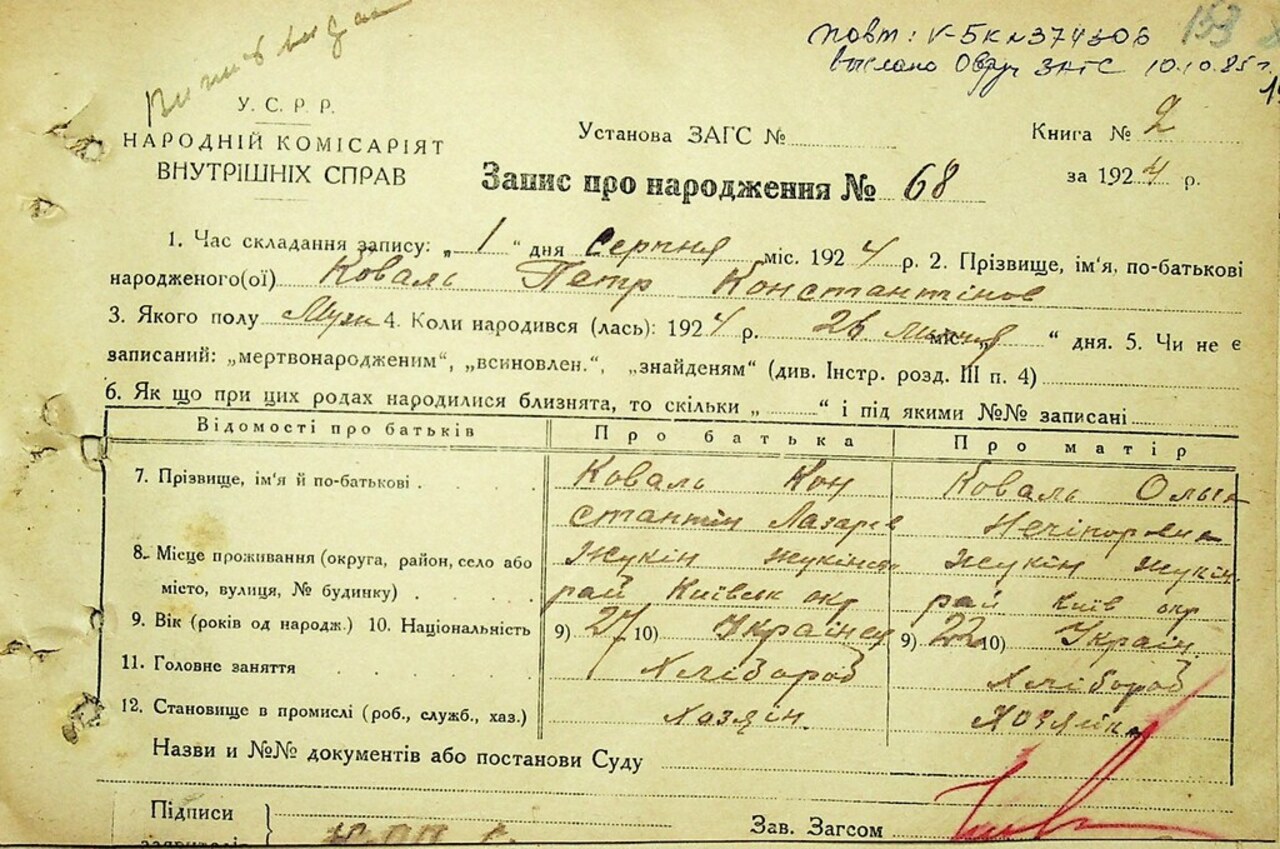 повт: V-БК №374306 159
выслано Овруч ЗАГС 10.10.85 г.
У. С. Р. Р.
НАРОДНІЙ КОМІСАРІЯТ
ВНУТРІШНІХ СПРАВ
Установа ЗАГС №
Книга № 2
Запис про народження № 68
за 1924 р.
1. Час складання запису: „1“ дня Серпня міс. 1924 р. 2. Прізвище, ім'я, по-батькові
народженого(ої) Коваль Петр Константінов
3. Якого полу Муж 4. Коли народився (лась): 1924 р. 26 міс. “ дня. 5. Чи не є
записаний: „мертвонародженим“, „всиновлен.“, „знайденям“ (див. Інстр. розд. III п. 4)
6. Як що при цих родах народилися близнята, то скільки „ “ і під якими №№ записані
Відомості про батьків Про батька Про матір
7. Прізвище, ім'я й по-батькові Коваль Кон Коваль Ольга
стантін Лазарев Нечіпоровна
8. Місце проживання (округа, район, село або Жукін Жукінск Жукін Жукін.
місто, вулиця, № будинку) рай Київськ окр рай Київ окр
9. Вік (років од народж.) 10. Національність 9) 27 10) Українец 9) 22 10) Україн.
11. Головне заняття Хлібороб Хлібороб
12. Становище в промислі (роб., служб., хаз.) Хозяін. Хозяйка
Назви и №№ документів або постанови Суду
Підписи
заявителів
Зав. Загсом